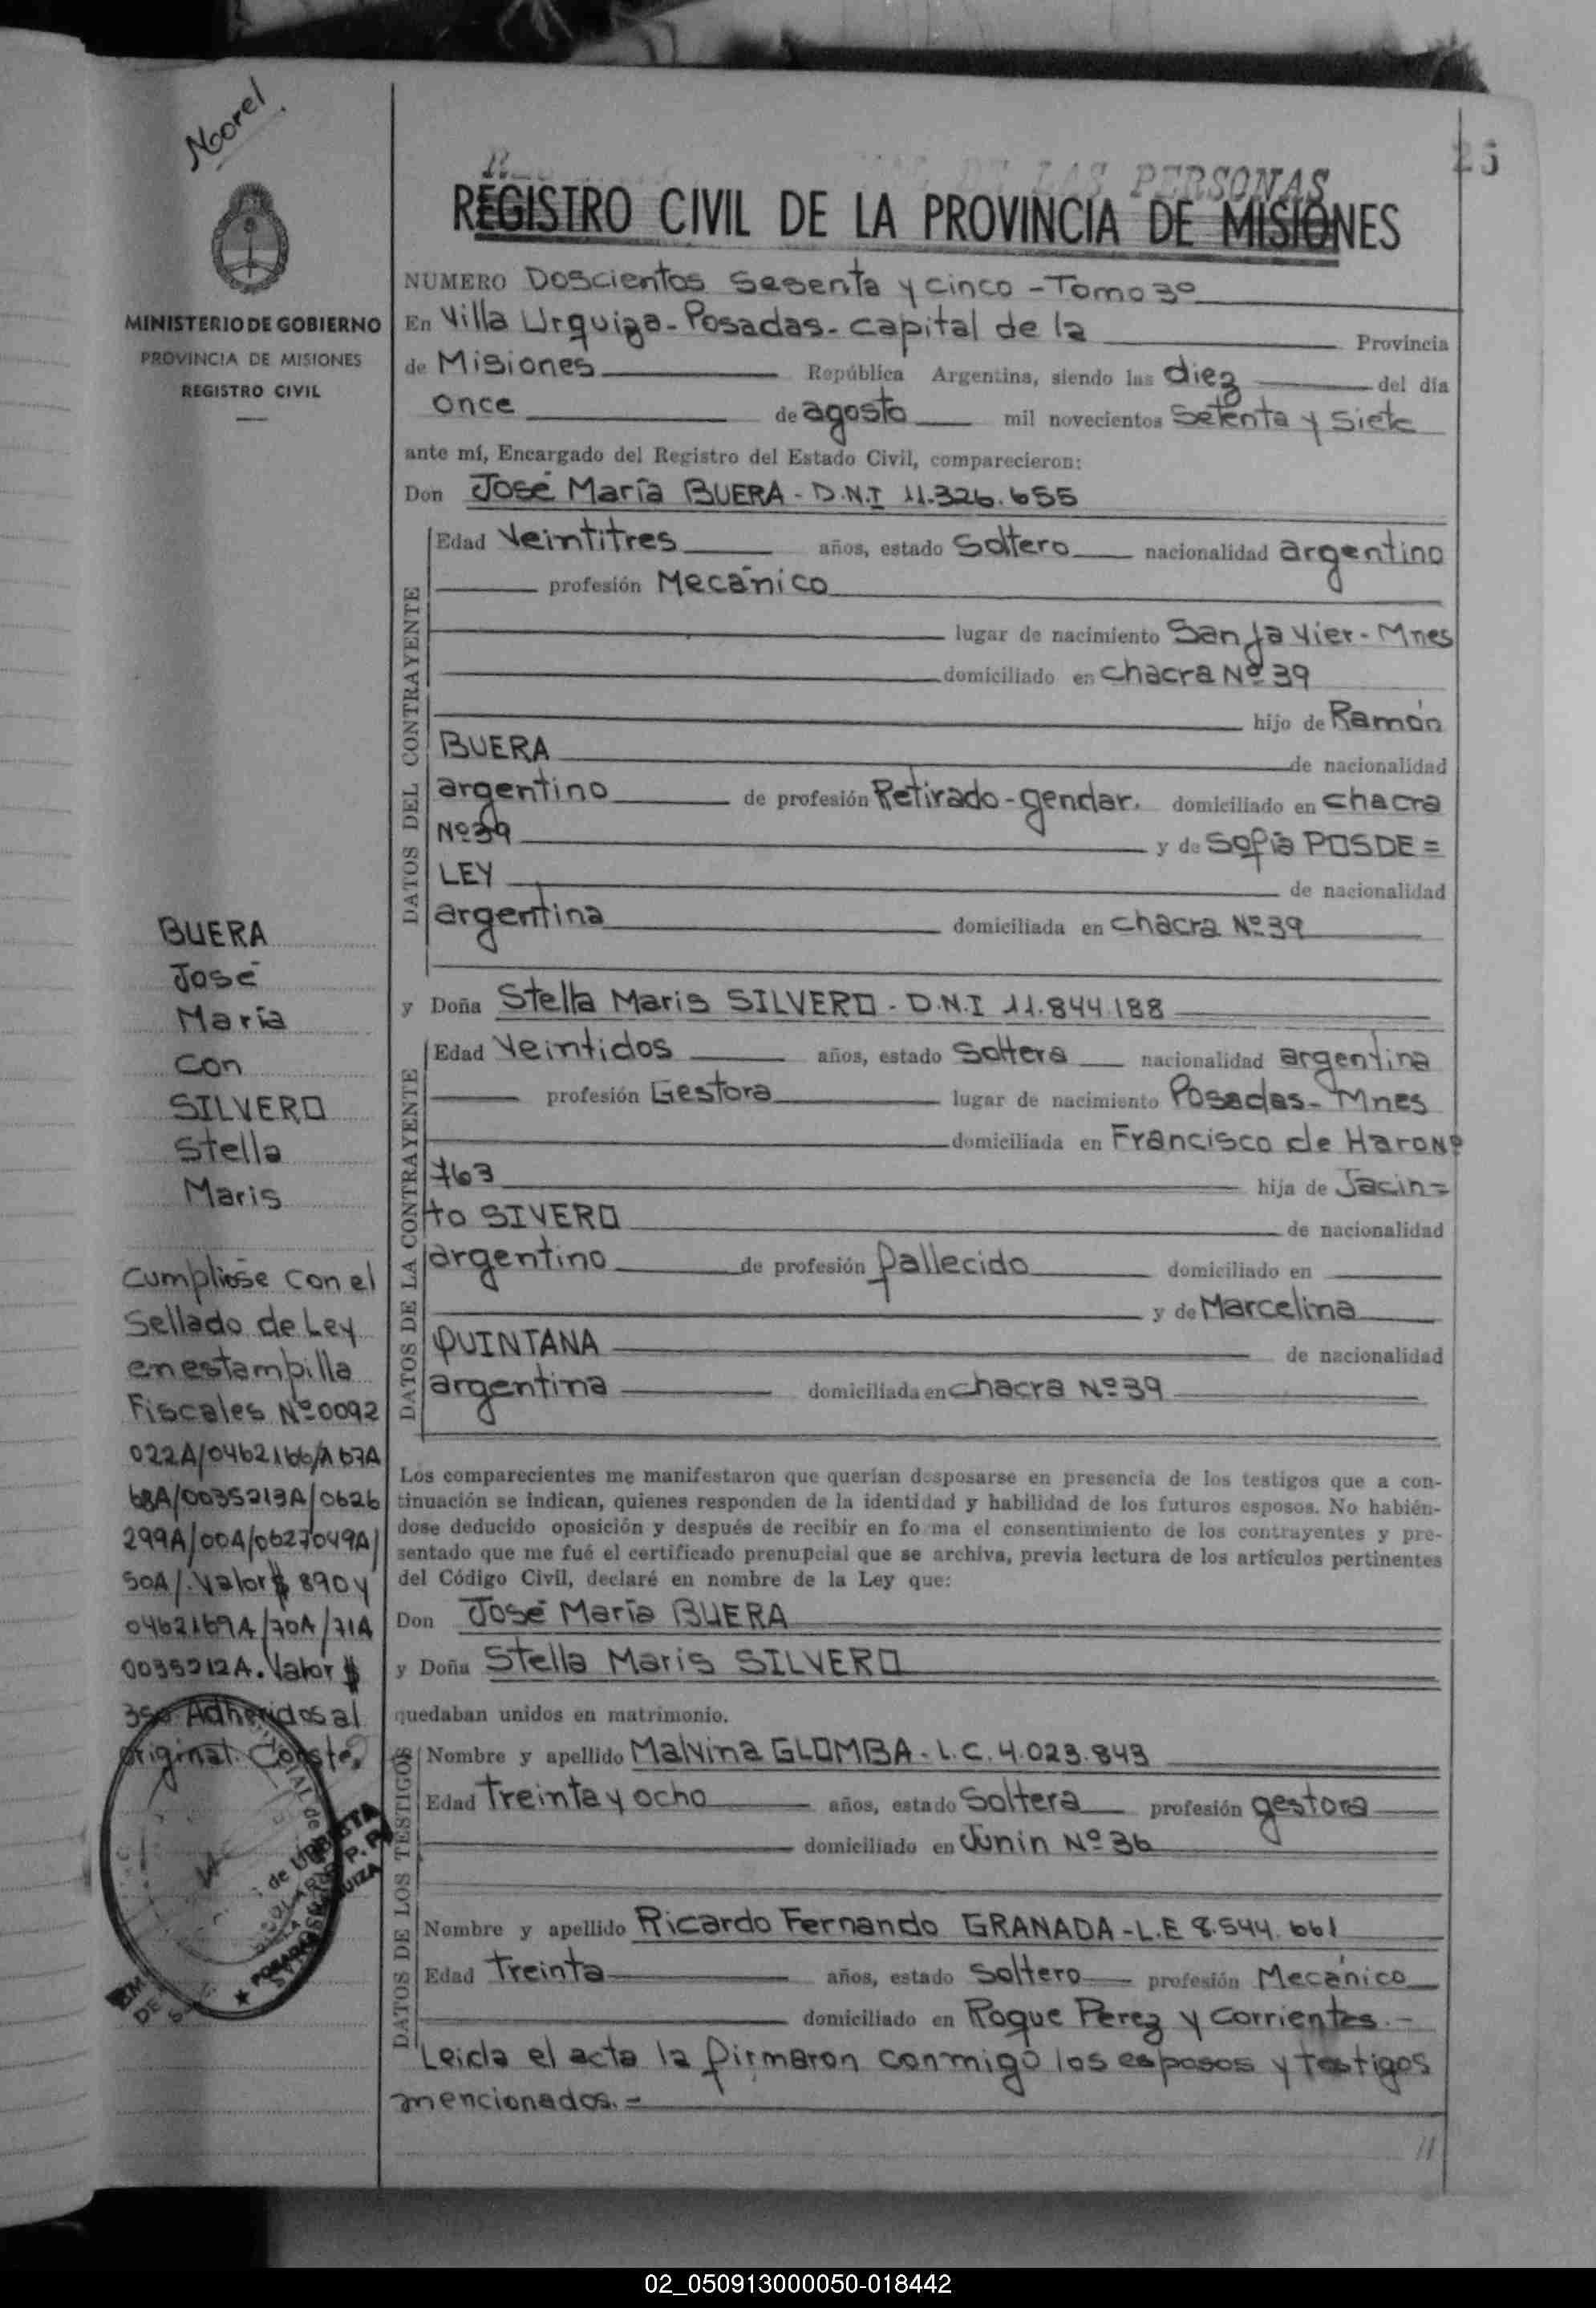 Noorel
25
DE LAS PERSONAS
REGISTRO CIVIL DE LA PROVINCIA DE MISIONES
MINISTERIO DE GOBIERNO
PROVINCIA DE MISIONES
REGISTRO CIVIL
NUMERO Doscientos Sesenta y cinco - Tomo 3º
En Villa Urquiza - Posadas - capital de la Provincia
de Misiones República Argentina, siendo las diez del día
once de agosto mil novecientos Setenta y Siete
ante mí, Encargado del Registro del Estado Civil, comparecieron:
Don José María BUERA - D.N.I 11.326.655
DATOS DEL CONTRAYENTE
Edad Veintitres años, estado Soltero nacionalidad argentino
profesión Mecánico
lugar de nacimiento San Javier - Mnes
domiciliado en chacra Nº 39
hijo de Ramón
BUERA de nacionalidad
argentino de profesión Retirado - gendar. domiciliado en chacra
Nº 39 y de Sofía POSDE =
LEY de nacionalidad
argentina domiciliada en chacra Nº 39
y Doña Stella Maris SILVERO - D.N.I 11.844.188
DATOS DE LA CONTRAYENTE
Edad Veintidos años, estado Soltera nacionalidad argentina
profesión Gestora lugar de nacimiento Posadas - Mnes
domiciliada en Francisco de Haro Nº
763 hija de Jacin =
to SIVERO de nacionalidad
argentino de profesión fallecido domiciliado en
y de Marcelina
QUINTANA de nacionalidad
argentina domiciliada en chacra Nº 39
Los comparecientes me manifestaron que querían desposarse en presencia de los testigos que a con-
tinuación se indican, quienes responden de la identidad y habilidad de los futuros esposos. No habién-
dose deducido oposición y después de recibir en fo ma el consentimiento de los contrayentes y pre-
sentado que me fué el certificado prenupcial que se archiva, previa lectura de los artículos pertinentes
del Código Civil, declaré en nombre de la Ley que:
Don José María BUERA
y Doña Stella Maris SILVERO
quedaban unidos en matrimonio.
DATOS DE LOS TESTIGOS
Nombre y apellido Malvina GLOMBA - L.C. 4.023.843
Edad Treinta y ocho años, estado Soltera profesión gestora
domiciliado en Junin Nº 36
Nombre y apellido Ricardo Fernando GRANADA - L.E 8.544.661
Edad Treinta años, estado Soltero profesión Mecánico
domiciliado en Roque Perez y Corrientes. -
Leida el acta la firmaron conmigo los esposos y testigos
mencionados. -
BUERA
José
María
Con
SILVERO
Stella
Maris
Cumpliose con el
Sellado de Ley
en estampilla
Fiscales Nº 0092
022A/0462166/A 67A
68A/0035213A/0626
299A/00A/0627049A/
50A/. Valor $ 890 y
0462169A/70A/71A
0035212A. Valor $
350 Adheridos al
original. Conste.
02_050913000050-018442